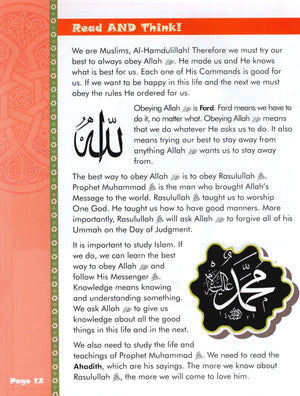 Read AND Think!
We are Muslims, Al-Hamdulillah! Therefore we must try our
best to always obey Allah ﷻ. He made us and He knows
what is best for us. Each one of His Commands is good for
us. If we want to be happy in this life and the next we must
obey the rules He ordered for us.
Obeying Allah ﷻ is Fard. Fard means we have to
do it, no matter what. Obeying Allah ﷻ means
that we do whatever He asks us to do. It also
means trying our best to stay away from
anything Allah ﷻ wants us to stay away
from.
الله
The best way to obey Allah ﷻ is to obey Rasulullah ﷺ.
Prophet Muhammad ﷺ is the man who brought Allah's
Message to the world. Rasulullah ﷺ taught us to worship
One God. He taught us how to have good manners. More
importantly, Rasulullah ﷺ will ask Allah ﷻ to forgive all of his
Ummah on the Day of Judgment.
It is important to study Islam. If
we do, we can learn the best
way to obey Allah ﷻ and
follow His Messenger ﷺ.
Knowledge means knowing
and understanding something.
We ask Allah ﷻ to give us
knowledge about all the good
things in this life and in the next.
محمد
We also need to study the life and
teachings of Prophet Muhammad ﷺ. We need to read the
Ahadith, which are his sayings. The more we know about
Rasulullah ﷺ, the more we will come to love him.
Page 12